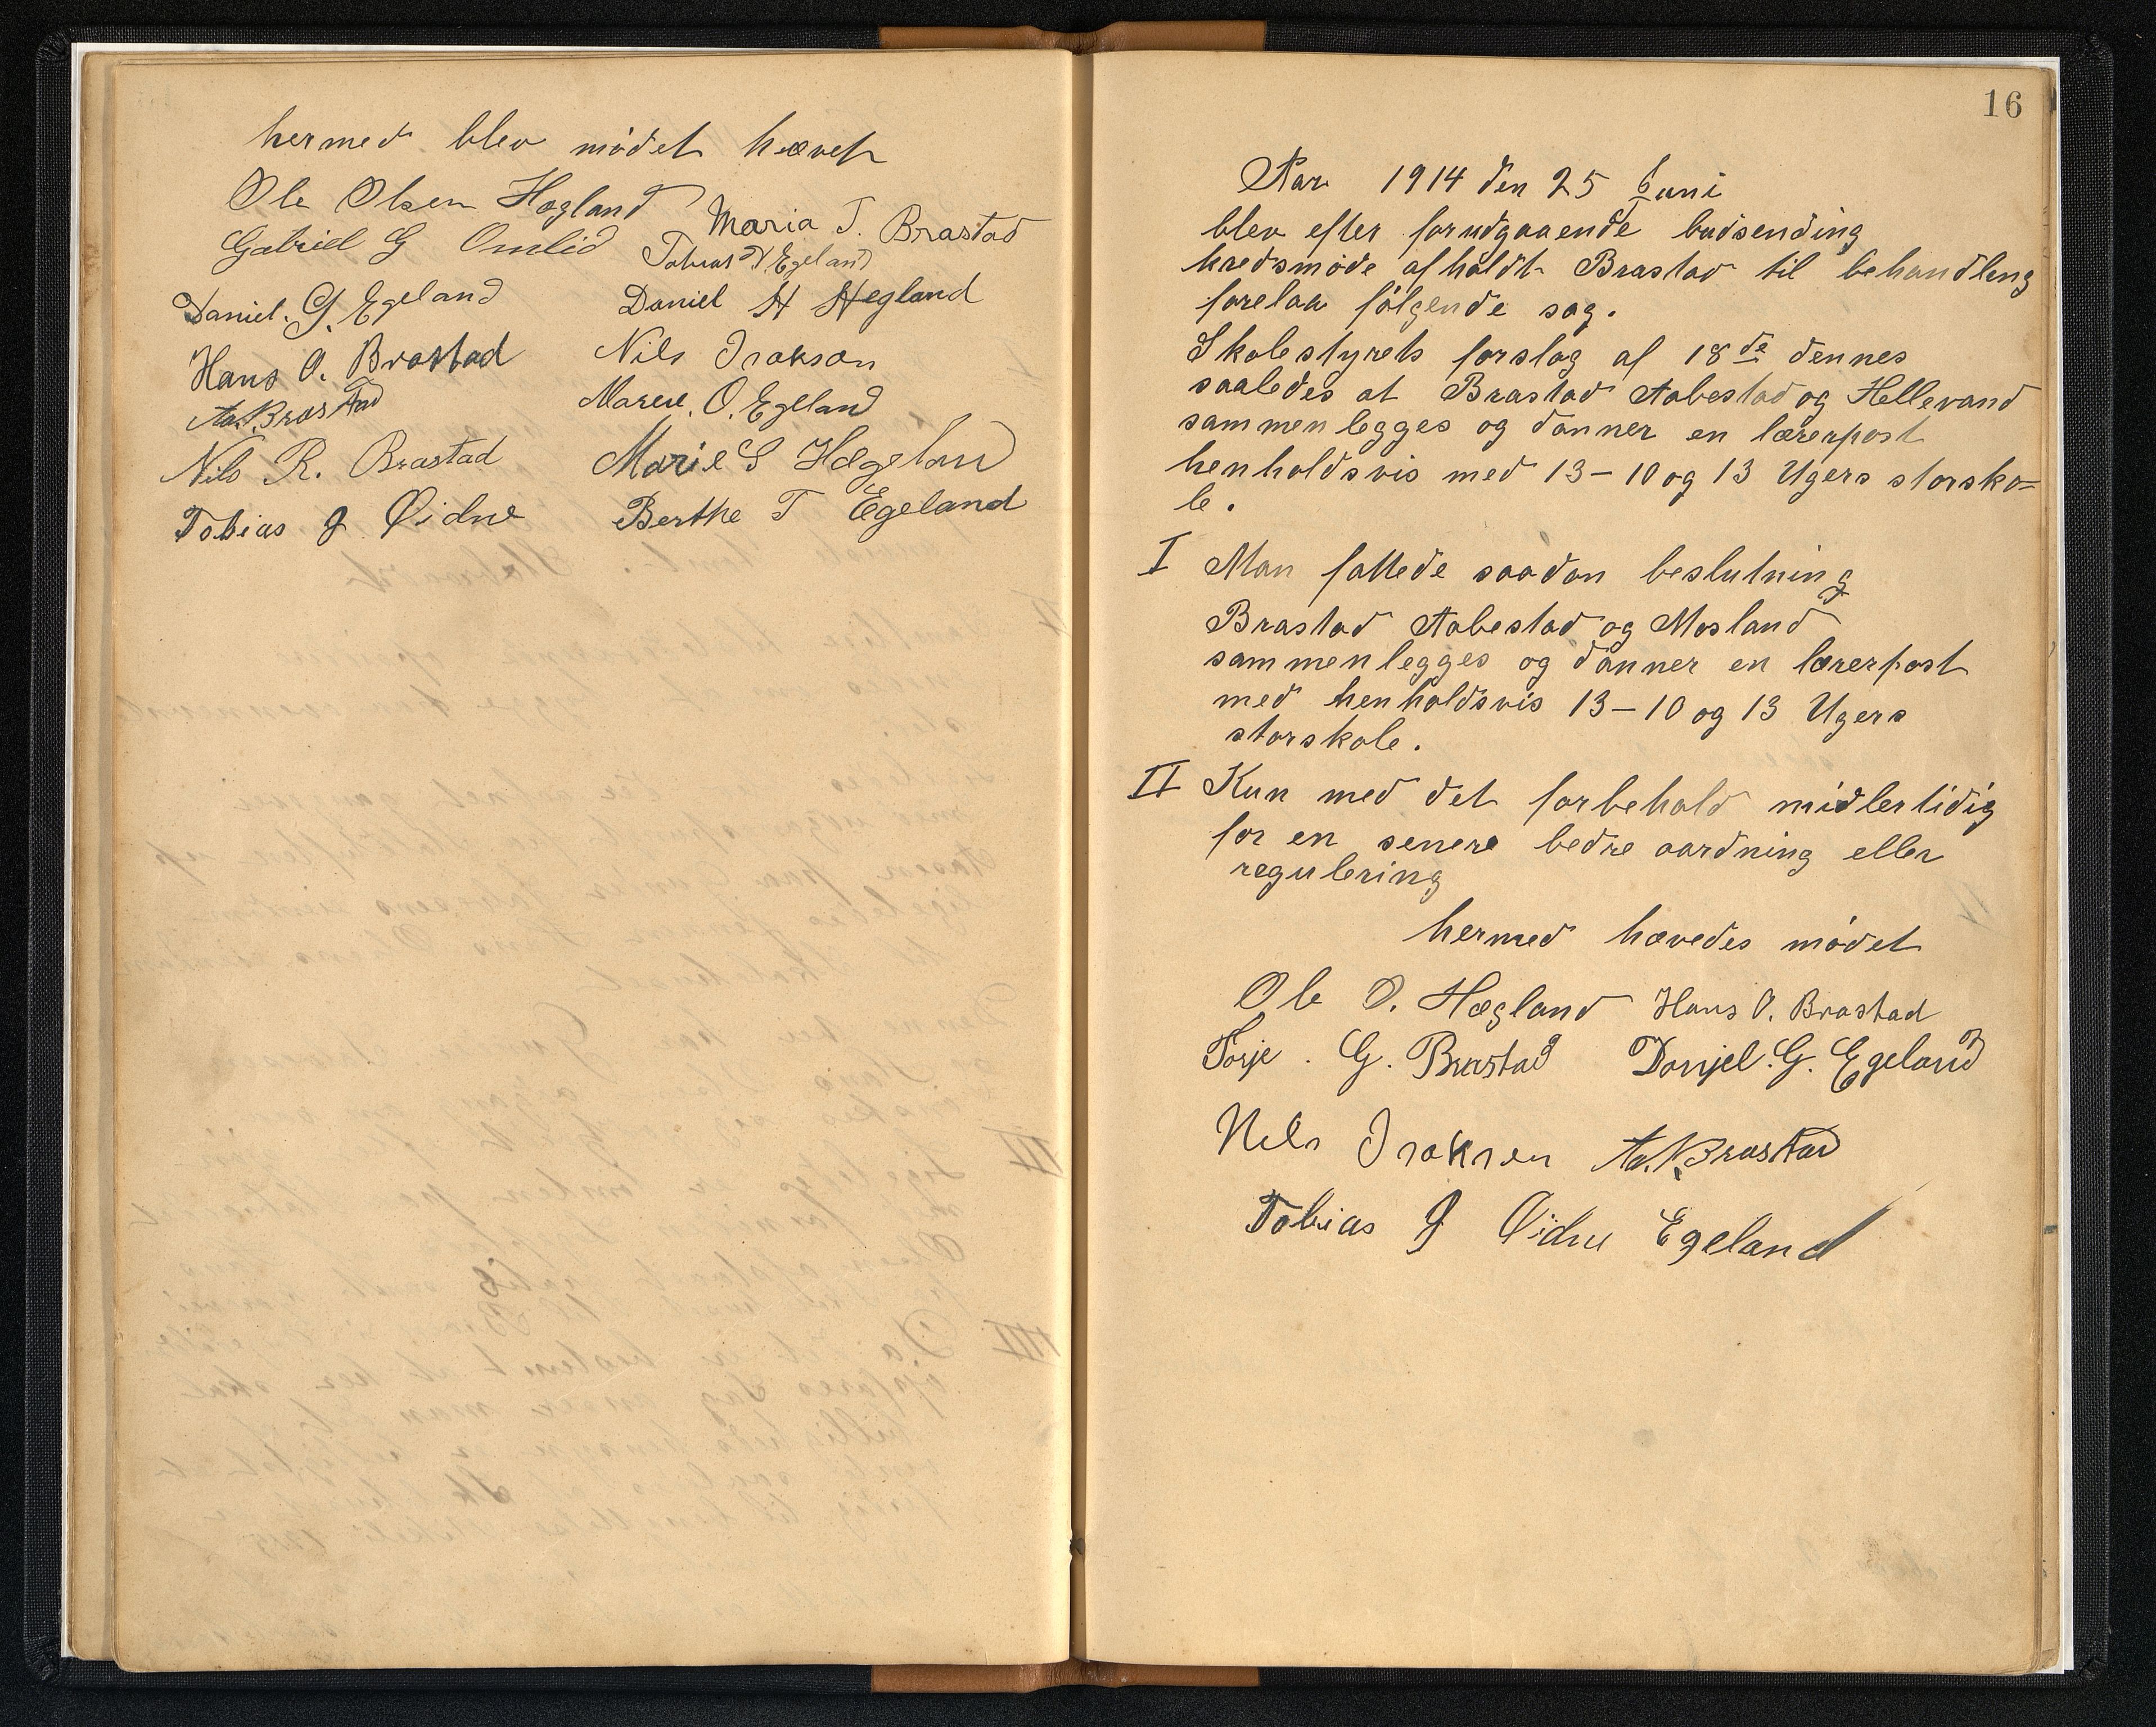 hermed blev mödet hævet
Ole Olsen Hægland
Maria T. Brastad
Gabriel G Omlid
Tobias T Egeland
Daniel. G. Egeland
Daniel H Hegland
Hans O. Brastad
Nils Isakson
Aa. K. Brastad
Maren. O. Egeland
Nils R. Brastad
Marie S Hægeland
Tobias J Øidne
Berthe T Egeland
16
Aar 1914 den 25 Juni
blev efter forudgaaende budsending
kredsmöde afholdt Brastad til behandling
forelaa fölgende sag.
Skolestyrets forslag af 18de dennes
saaledes at Brastad Aabestad og Hellevand
sammenlegges og danner en lærerpost
henholdsvis med 13-10 og 13 Ugers storsko=
le.
I Man fattede saadan beslutning
Brastad Aabestad og Mosland
sammenlegges og danner en lærerpost
med henholdsvis 13-10 og 13 Ugers
storskole.
II Kun med det forbehold midlertidig
for en senere bedre aardning eller
regulering
hermed hævedes mödet
Ole O. Hægland Hans O. Brastad
Torje. G. Brastad Danjel. G. Egeland
Nils Isaksen Aa. K. Brastad
Tobias J Øidne Egeland